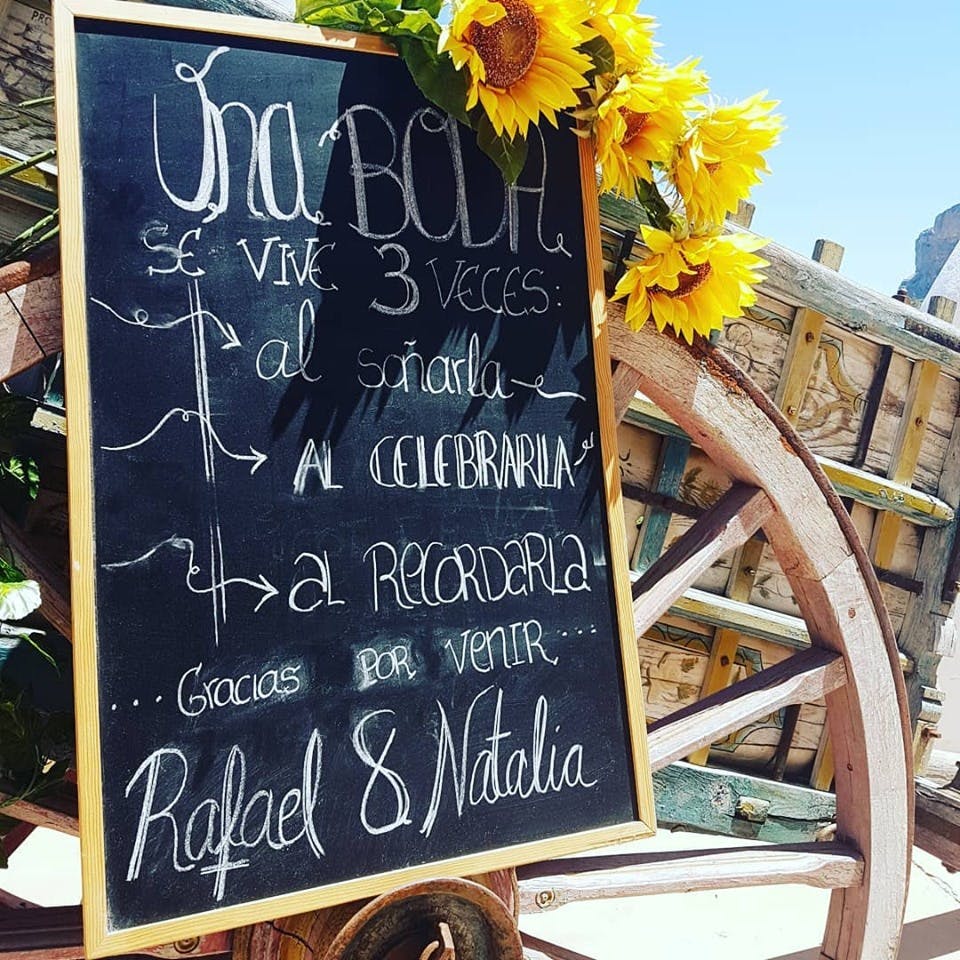 Una BODA
SE VIVE 3 VECES:
al soñarla
AL CELEBRARLA
aL RECORDARLa
...Gracias POR VENIR...
Rafael & Natalia